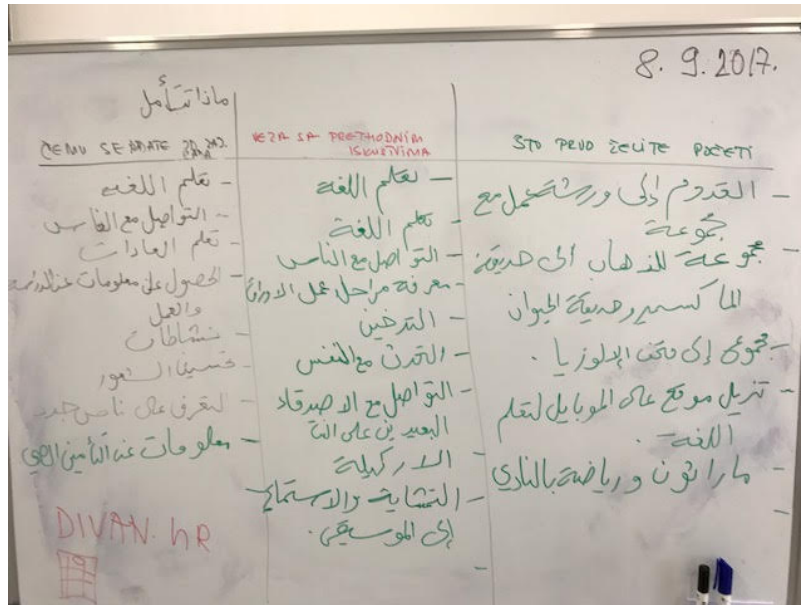 8. 9. 2017.
ماذا تتأمل
ČEMU SE NADATE
- تعلم اللغة
- التواصل مع الناس
- تعلم العادات
- الحصول على معلومات عن الدراسة
والعمل
- نشاطات
- تحسين الشعور
- التعرف على ناس جدد
- معلومات عن التأمين الصحي
DIVAN.hR
VEZA SA PRETHODNIM
ISKUSTVIMA
- تعلم اللغة
- تعلم اللغة
- التواصل مع الناس
- معرفة مراحل عمل الاوراق
- التدخين
- التحدث مع النفس
- التواصل مع الاصدقاء
البعيدين على النت
- الاركيلة
- التمشاية والاستماع
إلى الموسيقى.
-
STO PRVO ŽELITE POČETI
- القدوم إلى ورشة عمل مع
مجموعة
- مجموعة للذهاب الى حديقة
الماكسمير وحديقة الحيوان
- جموعى إلى متحف الإلوزيا.
- تنزيل موقع على الموبايل لتعلم
اللغة.
- ماراثون ورياضة بالنادي
-